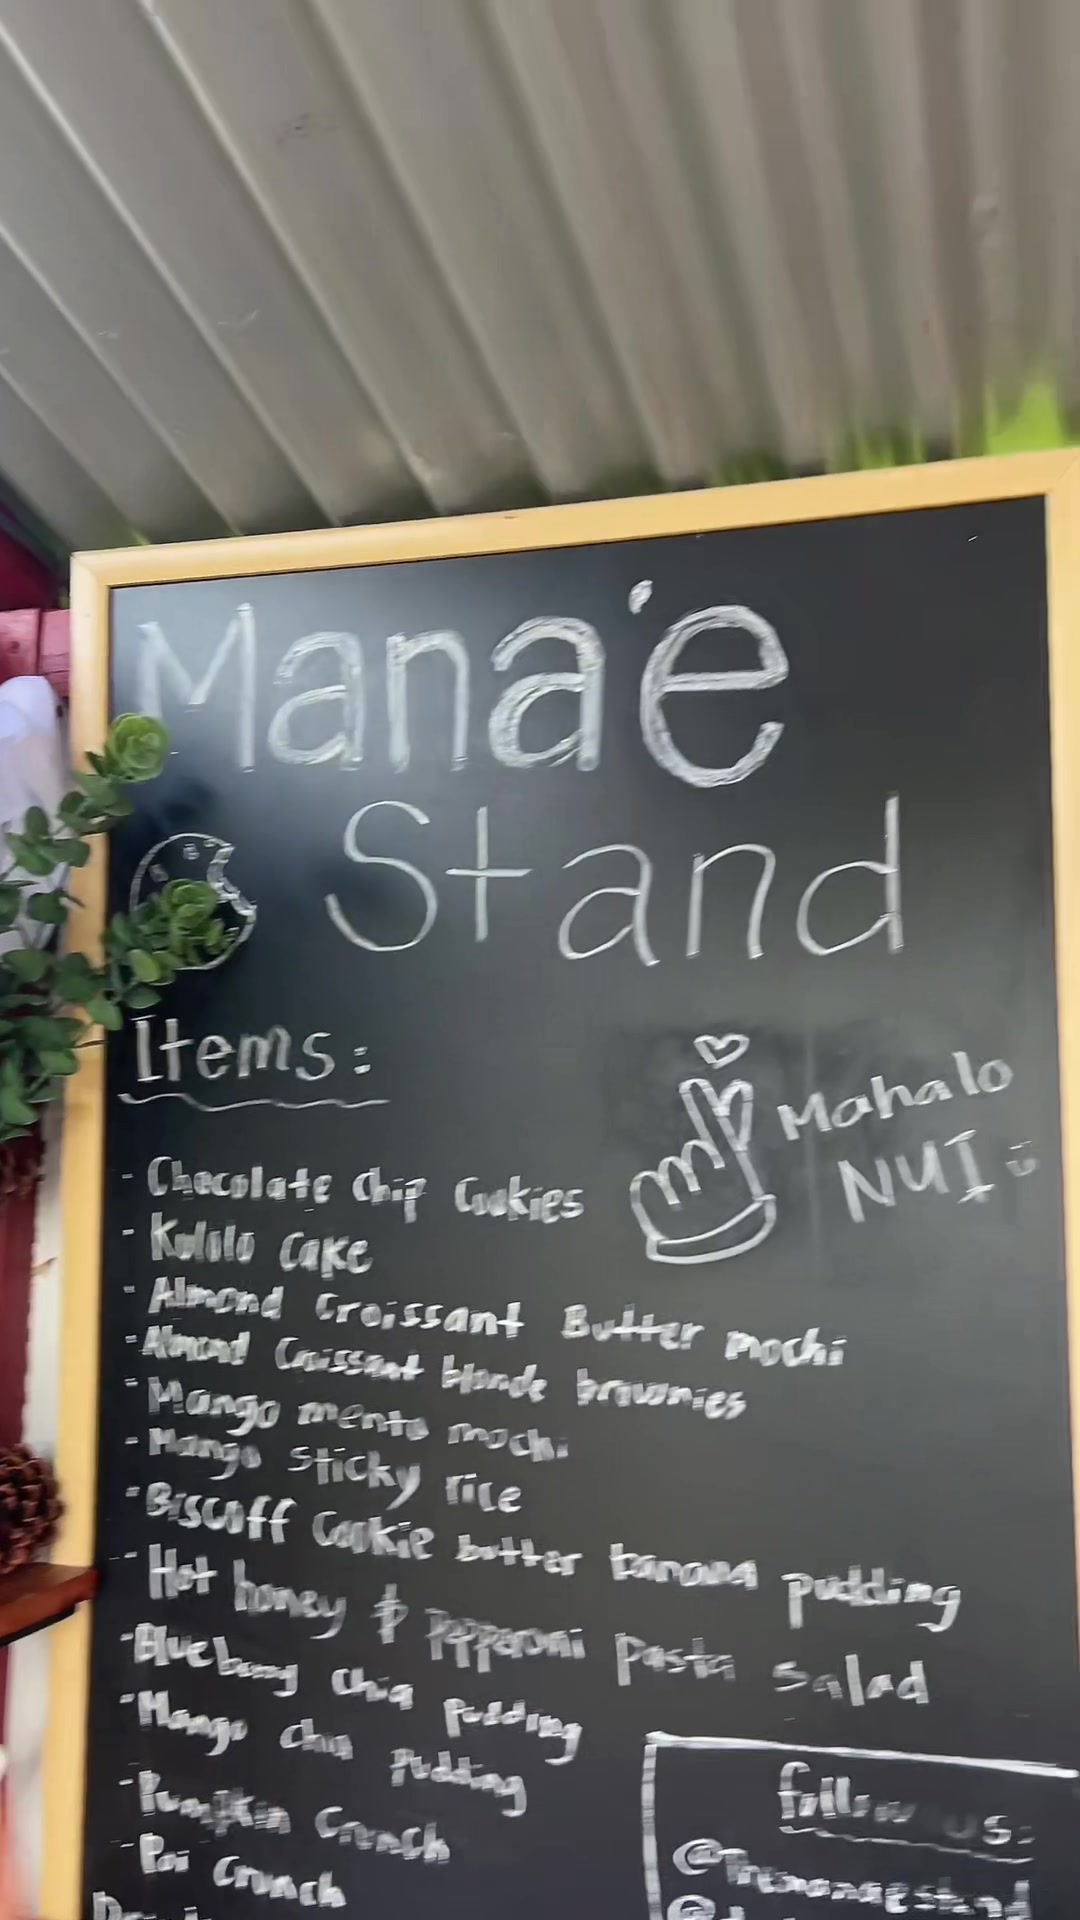 Mana'e
Stand
Items:
Mahalo
NUI
- Chocolate Chip Cookies
- Kulolo Cake
- Almond Croissant Butter mochi
- Almond Croissant blonde brownies
- Mango mento mochi
- Mango sticky rice
- Biscoff Cookie butter banana pudding
- Hot honey & Pepperoni pasta salad
- Blueberry chia pudding
- Mango chia pudding
- Pumpkin Crunch
- Poi Crunch
follow us:
@Themanaestand